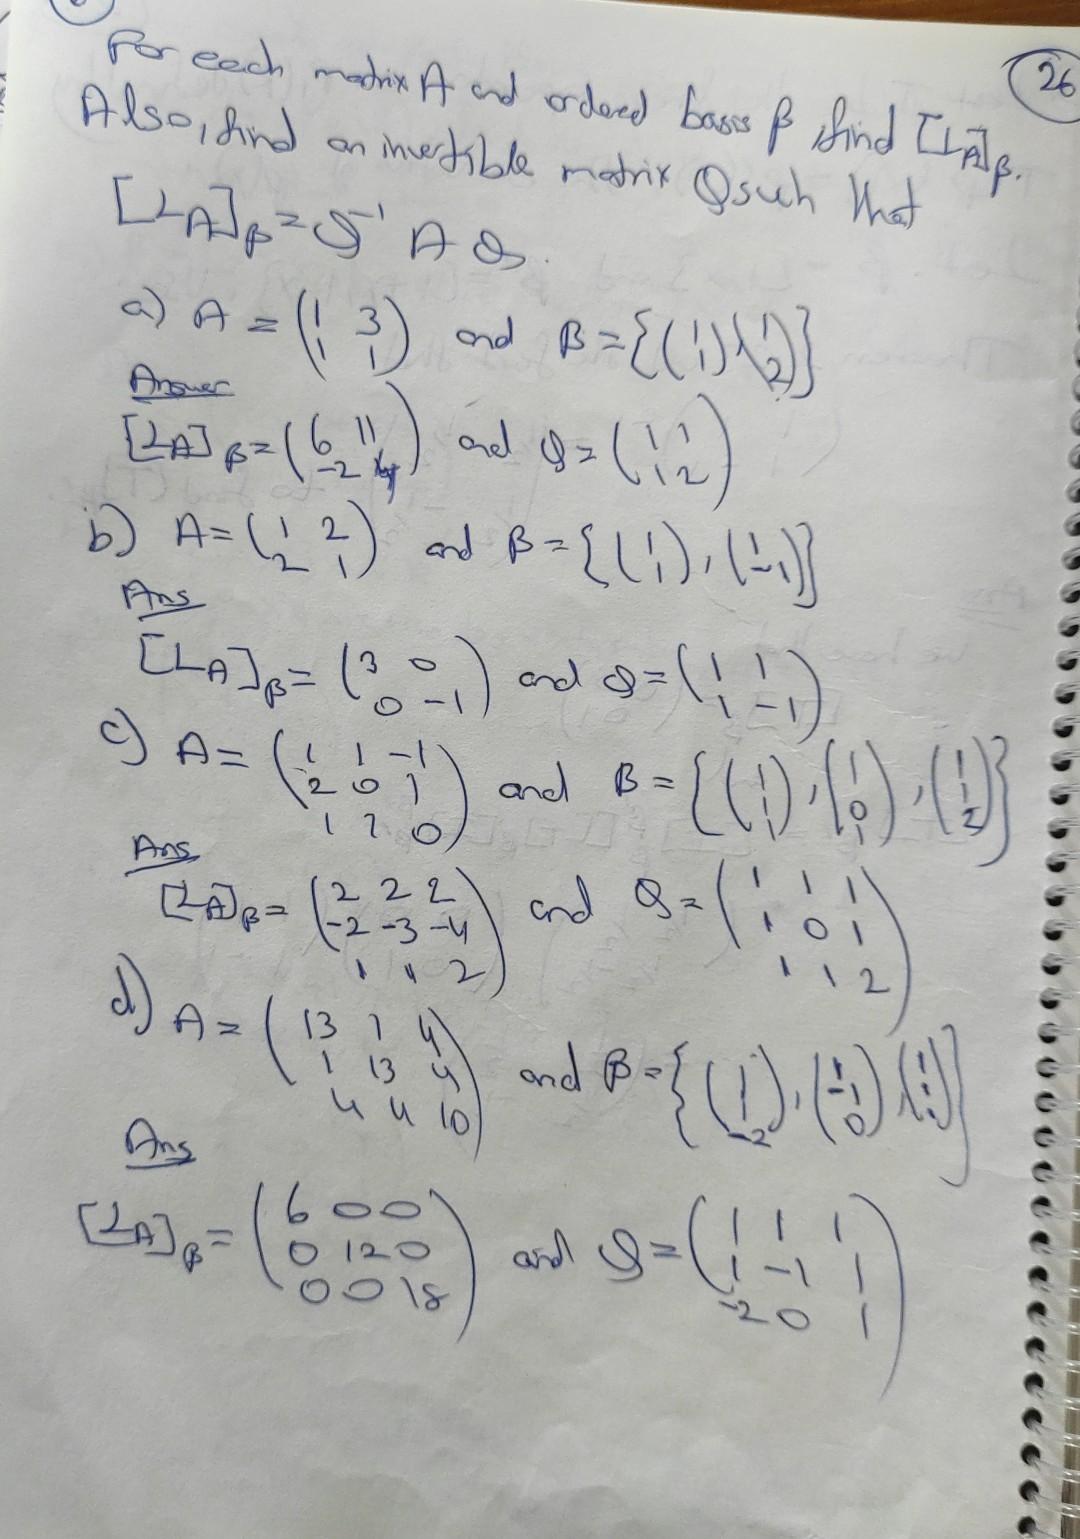 26
For each matrix A and ordered basis β, find [L_A]_β.
Also, find an invertible matrix Q such that
[L_A]_β = Q⁻¹ A Q.
a) A = (1 3; 1 1) and β = {(1; 1), (1; 2)}
Answer
[L_A]_β = (6 11; -2 -4) and Q = (1 1; 1 2)
b) A = (1 2; 2 1) and β = {(1; 1), (1; -1)}
Ans
[L_A]_β = (3 0; 0 -1) and Q = (1 1; 1 -1)
c) A = (1 1 -1; 2 0 1; 1 1 0) and β = {(1; 1; 1), (1; 0; 1), (1; 1; 2)}
Ans
[L_A]_β = (2 2 2; -2 -3 -4; 1 1 2) and Q = (1 1 1; 1 0 1; 1 1 2)
d) A = (13 1 4; 1 13 4; 4 4 10) and β = {(1; 1; -2), (1; -1; 0), (1; 1; 1)}
Ans
[L_A]_β = (6 0 0; 0 12 0; 0 0 18) and Q = (1 1 1; 1 -1 1; -2 0 1)